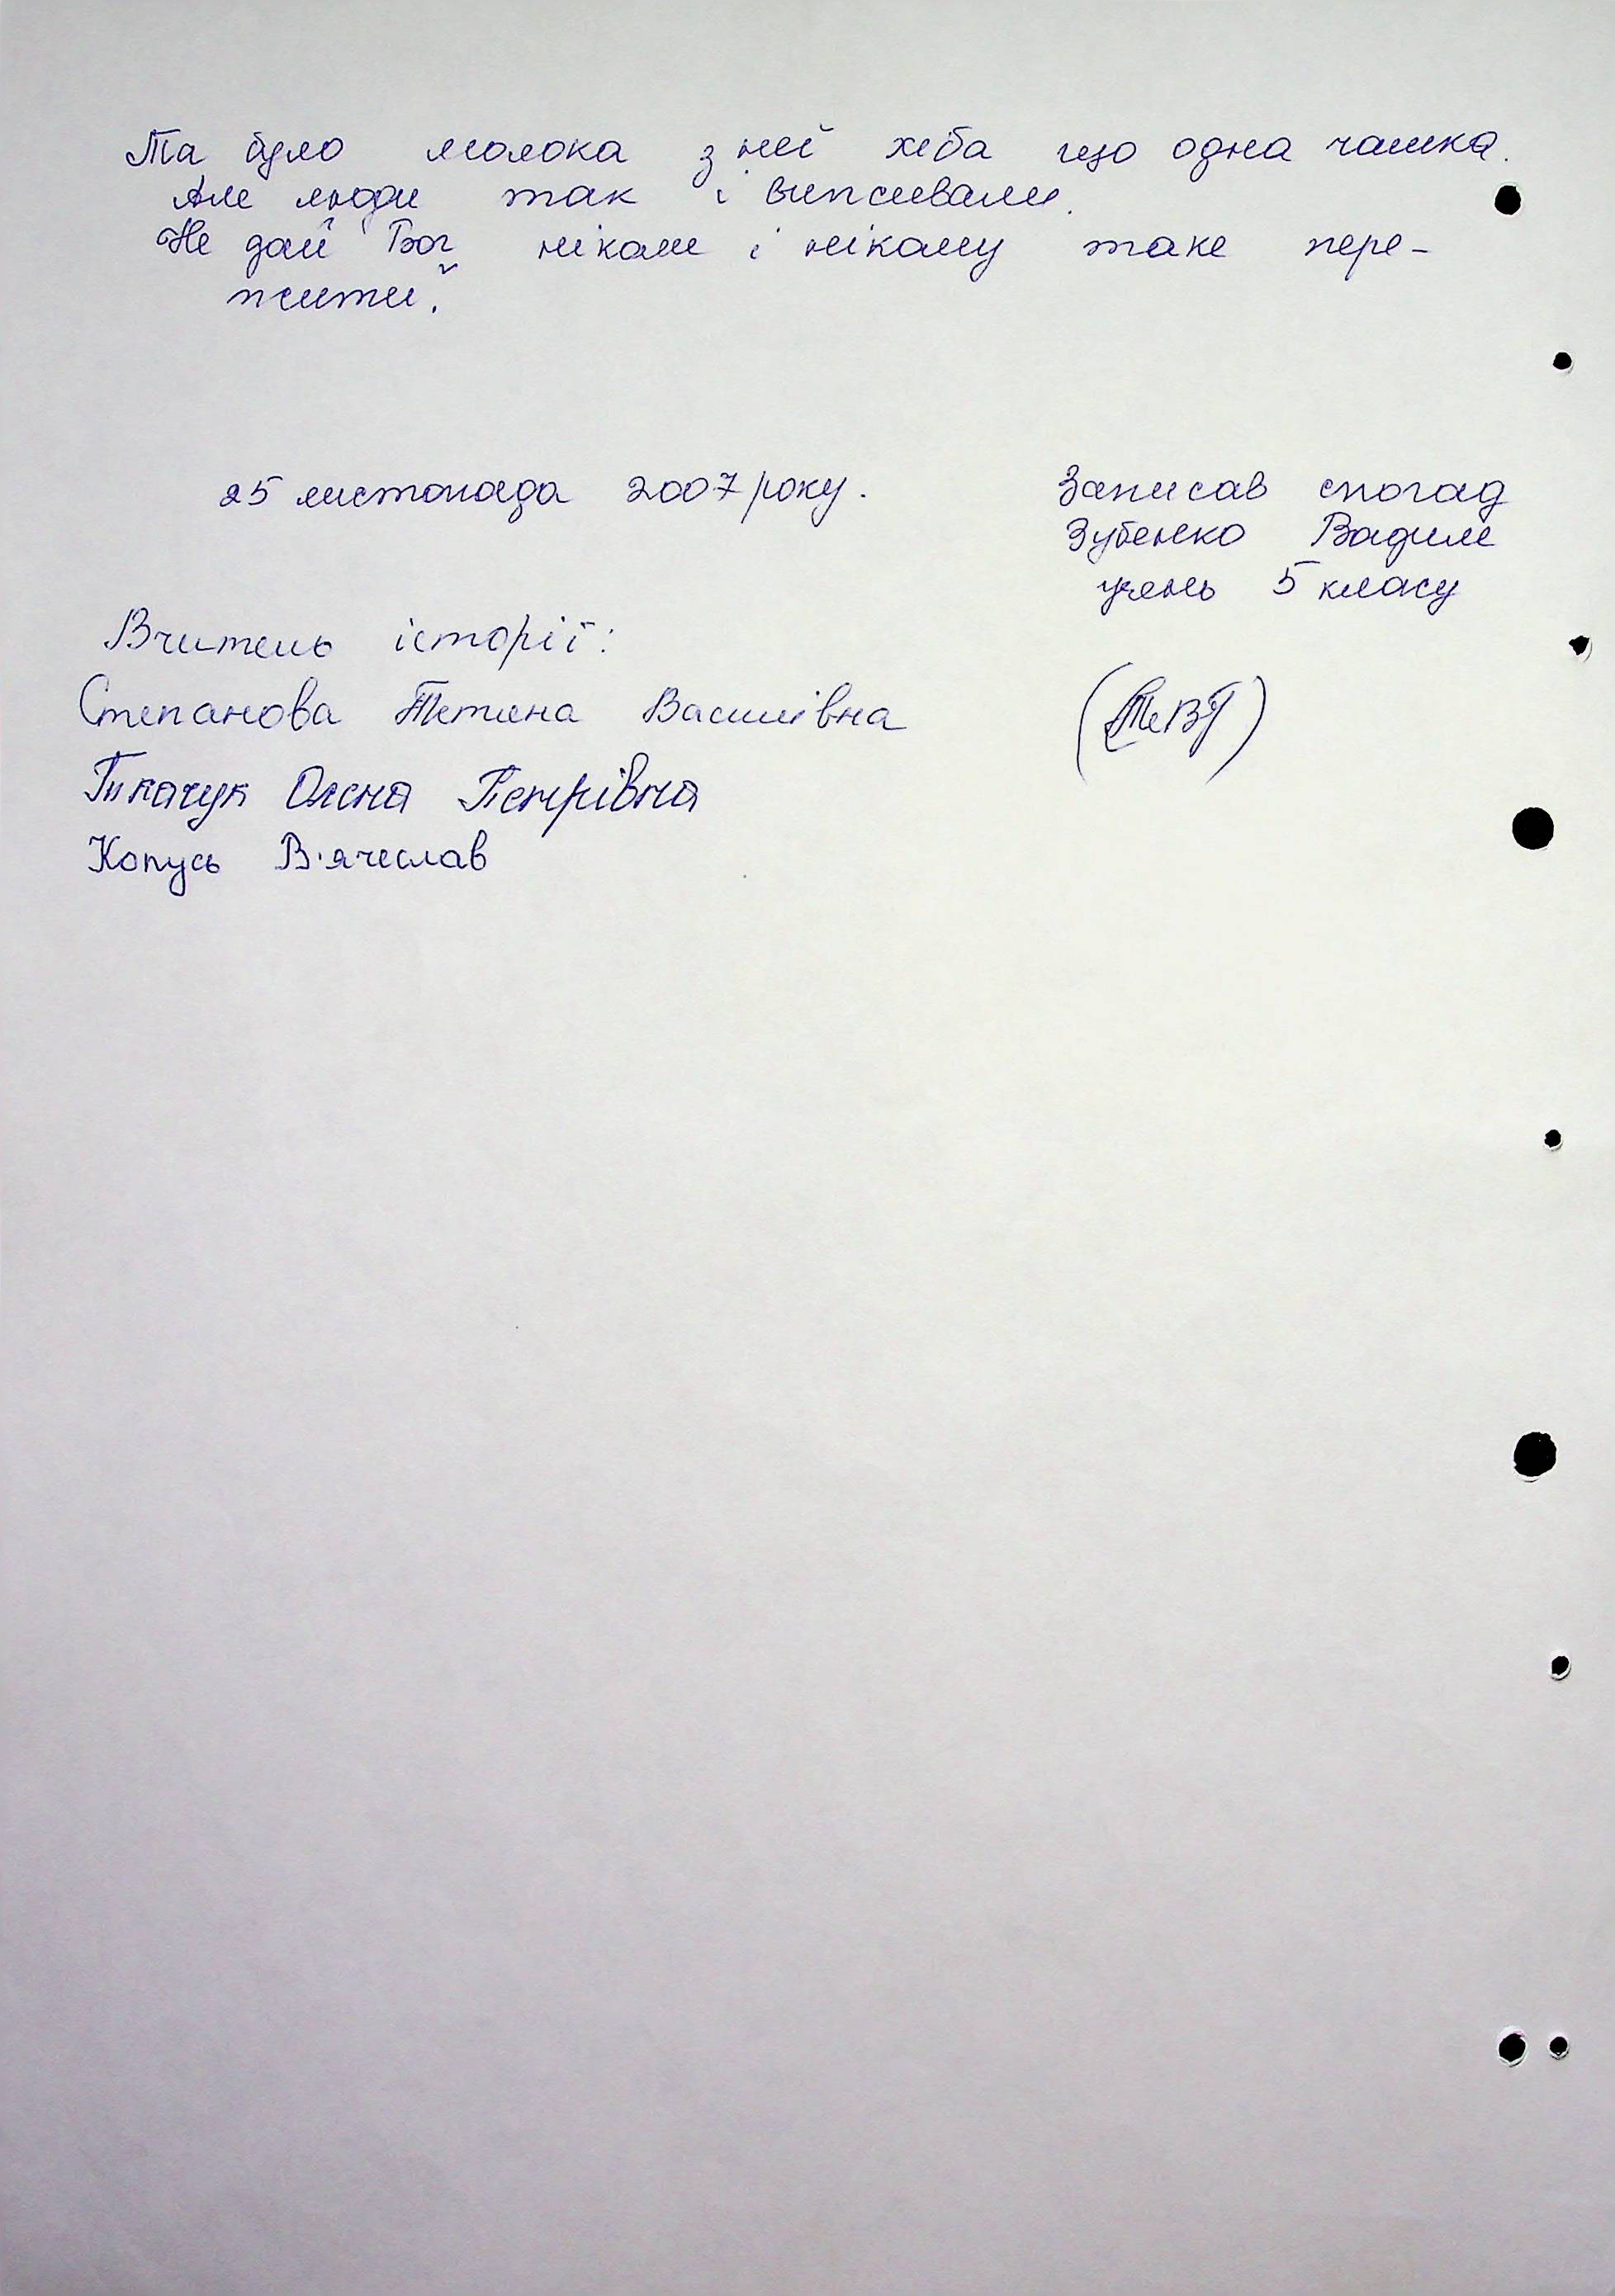 Та було молока з неї хіба що одна чашка.
Але люди так і виживали.
Не дай Бог ніколи і нікому таке пере-
жити.
25 листопада 2007 року.
Записав спогад
Зубенко Вадим
учень 5 класу
Вчитель історії:
Степанова Тетяна Василівна
Ткачук Олена Петрівна
Копусь В'ячеслав